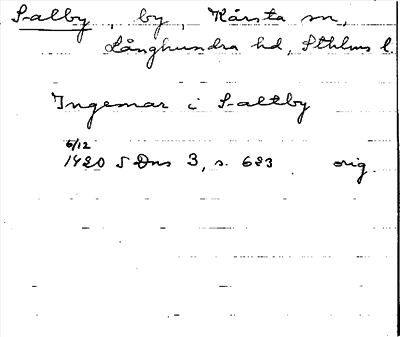 Salby, by, Kårsta sn,
Långhundra hd, Sthlms l.
Ingemar i Saltby
6/12
1420 S Dns 3, s. 623 orig.